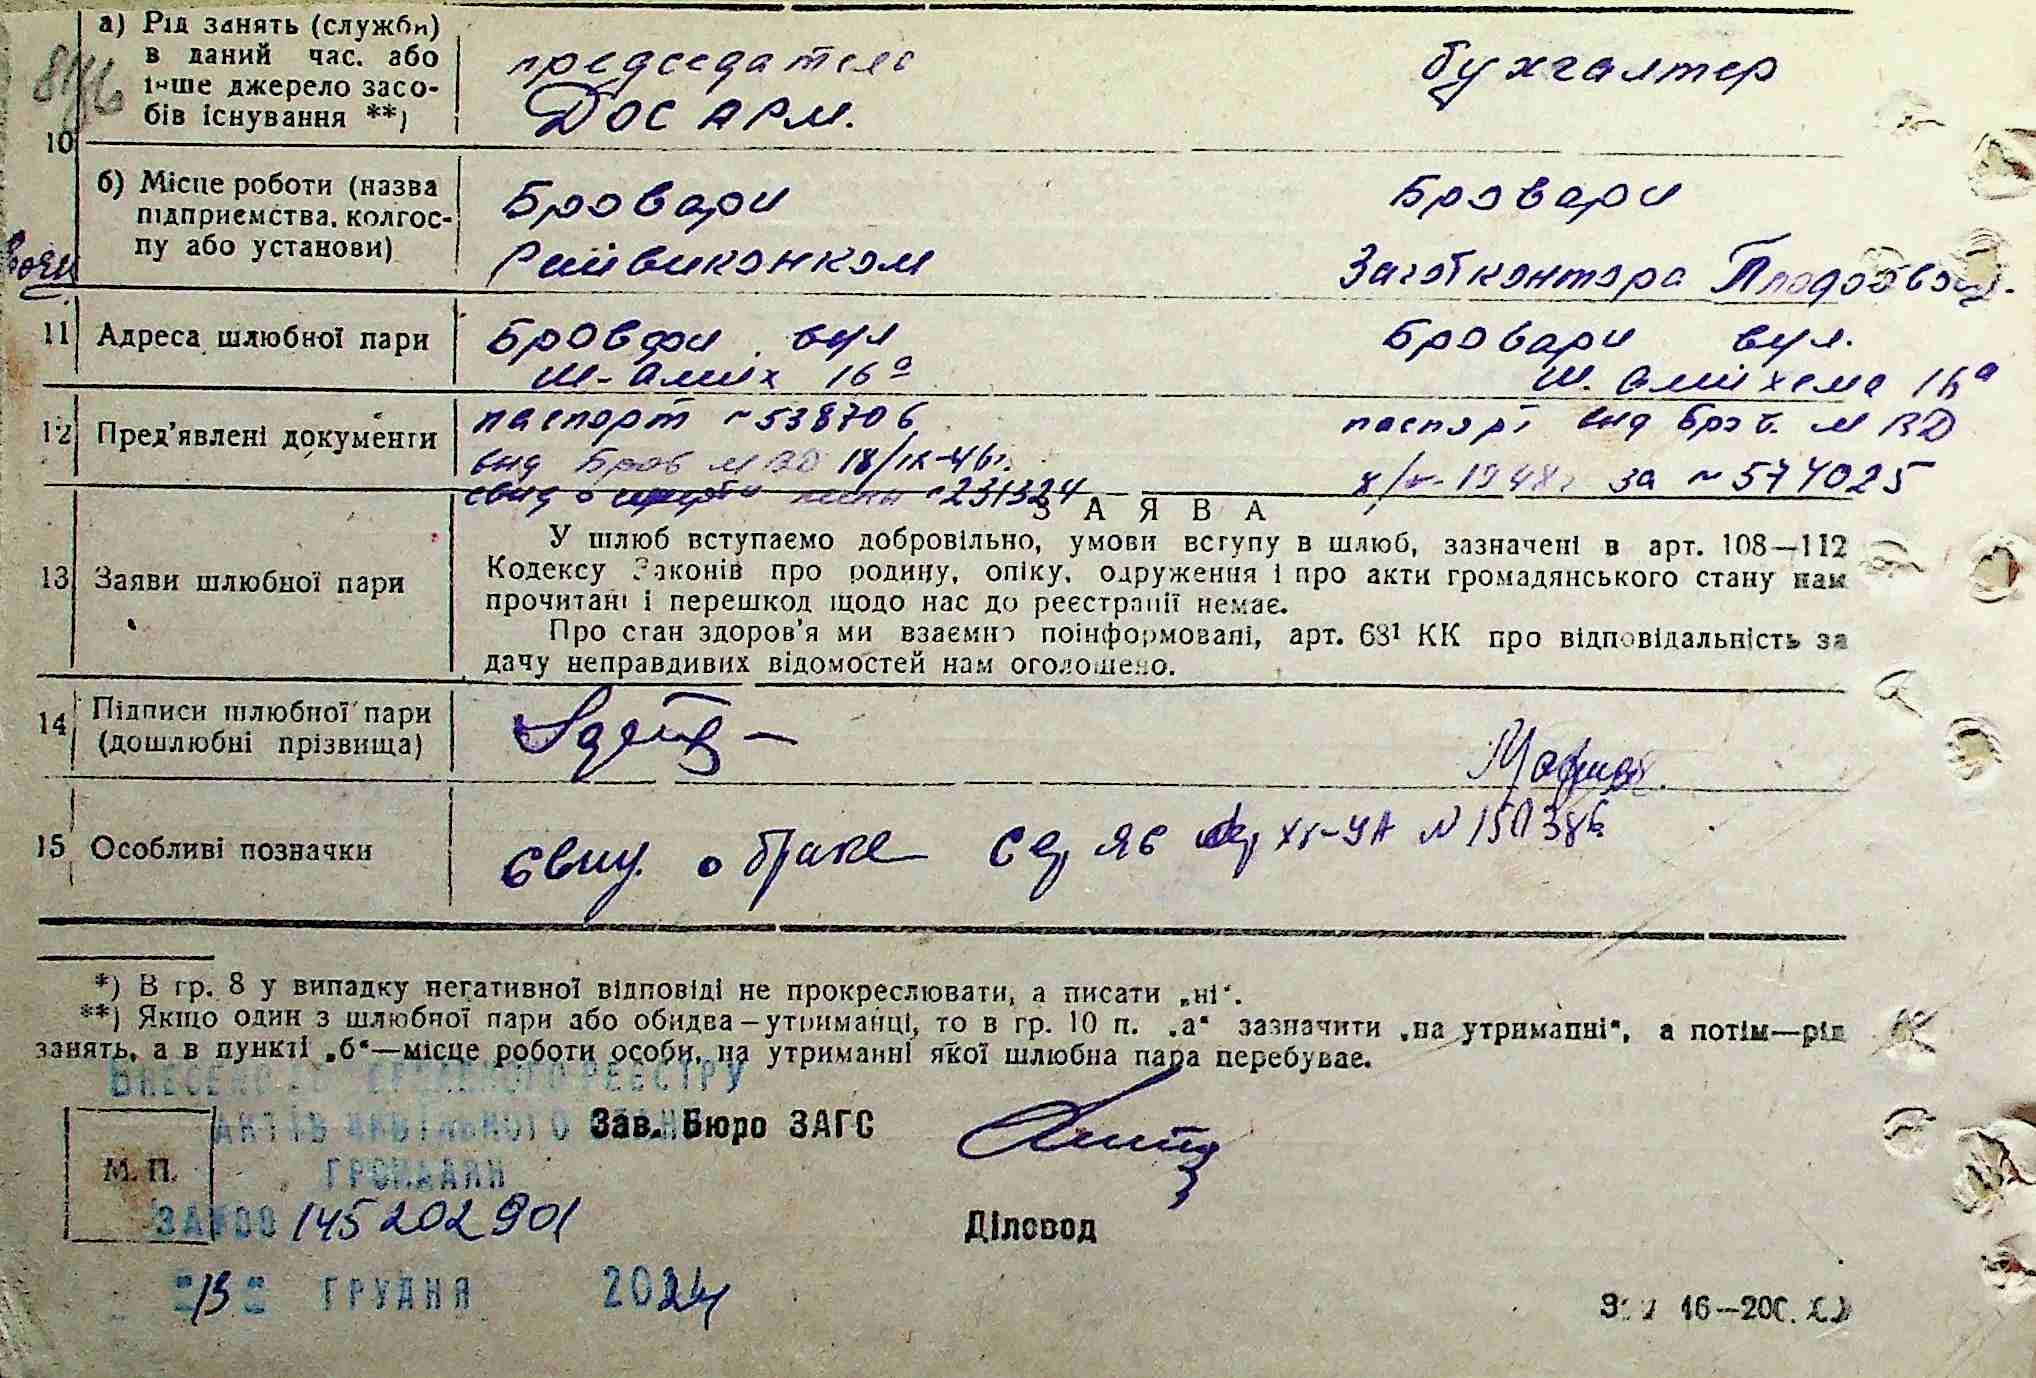 а) Рід занять (служби) в даний час, або інше джерело засобів існування **)
председатель
ДОСАРМ.
бухгалтер
10
б) Місце роботи (назва підприємства, колгоспу або установи)
Бровари
Райвиконком
Бровари
Заготконтора
11 Адреса шлюбної пари
Бровари вул
16а
Бровари вул.
16а
12 Пред'явлені документи
паспорт №538706
вид Бров 18/IX-46г.
231324
паспорт вид Бров. МВД
1948г за №574025
З А Я В А
13 Заяви шлюбної пари
У шлюб вступаємо добровільно, умови вступу в шлюб, зазначені в арт. 108—112
Кодексу Законів про родину, опіку, одруження і про акти громадянського стану нам
прочитані і перешкод щодо нас до реєстрації немає.
Про стан здоров'я ми взаємно поінформовані, арт. 68¹ КК про відповідальність за
дачу неправдивих відомостей нам оголошено.
14 Підписи шлюбної пари
(дошлюбні прізвища)
15 Особливі позначки
о браке
*) В гр. 8 у випадку негативної відповіді не прокреслювати, а писати „ні“.
**) Якщо один з шлюбної пари або обидва—утриманці, то в гр. 10 п. „а“ зазначити „на утриманні“, а потім—рід
занять, а в пункті „б“—місце роботи особи, на утриманні якої шлюбна пара перебуває.
ВНЕСЕНО ДО ДЕРЖАВНОГО РЕЄСТРУ
АКТІВ ЦИВІЛЬНОГО СТАНУ
ГРОМАДЯН
Зав. Бюро ЗАГС
М. П.
145202901
Діловод
13 ГРУДНЯ 2024